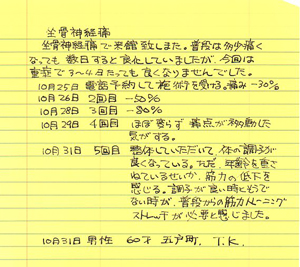 坐骨神経痛
坐骨神経痛で来館致しました。普段は多少痛く
なっても数日すると良化していましたが、今回は
重症で3〜4日たっても良くなりませんでした。
10月25日 電話予約して施術を受ける。痛み-30%
10月26日 2回目 -50%
10月28日 3回目 -80%
10月29日 4回目 ほぼ変らず 痛点が移動した
気がする。
10月31日 5回目 整体していただいて、体の調子が
良くなっている。ただ、年齢を重さ
ねているせいか、筋力の低下を
感じる。調子が良い時とそうで
ない時が、普段からの筋力トレーニング
ストレッチが必要と感じました。
10月31日 男性 60才 五戸町、T.K.